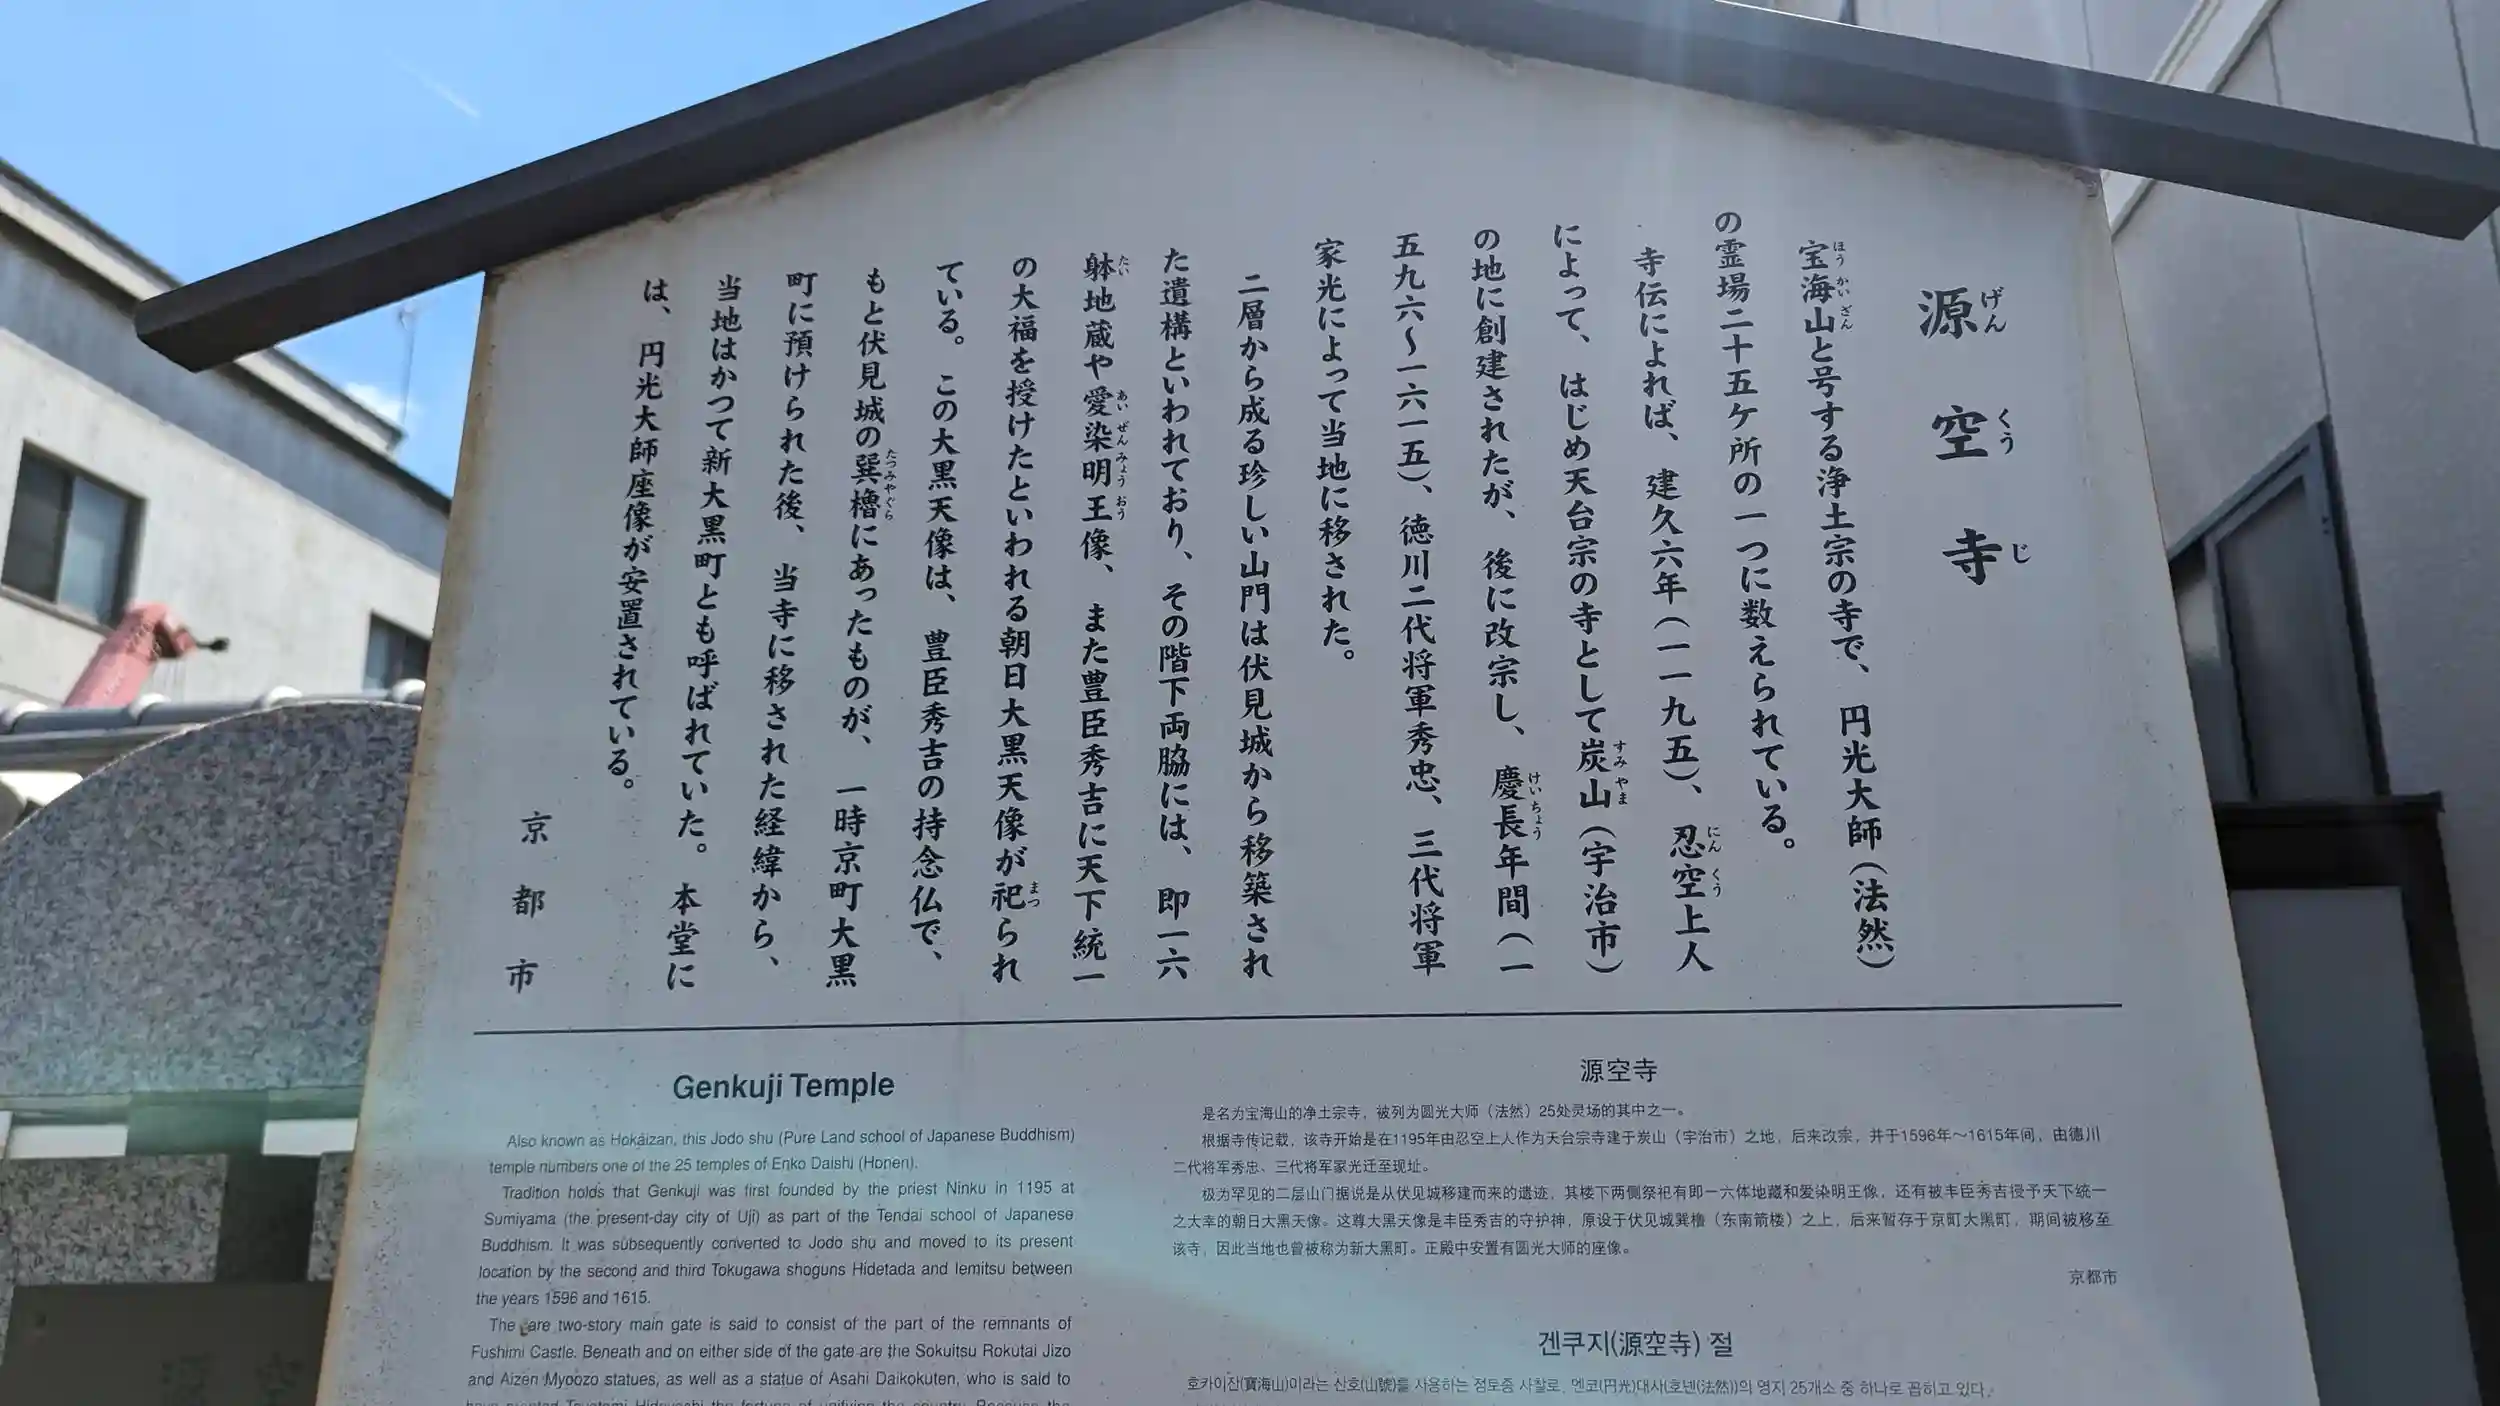 源空寺
宝海山と号する浄土宗の寺で、円光大師(法然)
の霊場二十五ケ所の一つに数えられている。
寺伝によれば、建久六年(一一九五)、忍空上人
によって、はじめ天台宗の寺として炭山(宇治市)
の地に創建されたが、後に改宗し、慶長年間(一
五九六〜一六一五)、徳川二代将軍秀忠、三代将軍
家光によって当地に移された。
二層から成る珍しい山門は伏見城から移築され
た遺構といわれており、その階下両脇には、即一六
躰地蔵や愛染明王像、また豊臣秀吉に天下統一
の大福を授けたといわれる朝日大黒天像が祀られ
ている。この大黒天像は、豊臣秀吉の持念仏で、
もと伏見城の巽櫓にあったものが、一時京町大黒
町に預けられた後、当寺に移された経緯から、
当地はかつて新大黒町とも呼ばれていた。本堂に
は、円光大師座像が安置されている。
京都市
Genkuji Temple
Also known as Hokaizan, this Jodo shu (Pure Land school of Japanese Buddhism)
temple numbers one of the 25 temples of Enko Daishi (Honen).
Tradition holds that Genkuji was first founded by the priest Ninku in 1195 at
Sumiyama (the present-day city of Uji) as part of the Tendai school of Japanese
Buddhism. It was subsequently converted to Jodo shu and moved to its present
location by the second and third Tokugawa shoguns Hidetada and Iemitsu between
the years 1596 and 1615.
The rare two-story main gate is said to consist of the part of the remnants of
Fushimi Castle. Beneath and on either side of the gate are the Sokuitsu Rokutai Jizo
and Aizen Myoozo statues, as well as a statue of Asahi Daikokuten, who is said to
源空寺
是名为宝海山的净土宗寺，被列为圆光大师（法然）25处灵场的其中之一。
根据寺传记载，该寺开始是在1195年由忍空上人作为天台宗寺建于炭山（宇治市）之地，后来改宗，并于1596年～1615年间，由德川
二代将军秀忠、三代将军家光迁至现址。
极为罕见的二层山门据说是从伏见城移建而来的遗迹，其楼下两侧祭祀有即一六体地藏和爱染明王像，还有被丰臣秀吉授予天下统一
之大幸的朝日大黑天像。这尊大黑天像是丰臣秀吉的守护神，原设于伏见城巽橹（东南箭楼）之上，后来暂存于京町大黑町，期间被移至
该寺，因此当地也曾被称为新大黑町。正殿中安置有圆光大师的座像。
京都市
겐쿠지(源空寺) 절
호카이잔(寶海山)이라는 산호(山號)를 사용하는 정토종 사찰로, 엔코(円光)대사(호넨(法然))의 영지 25개소 중 하나로 꼽히고 있다.